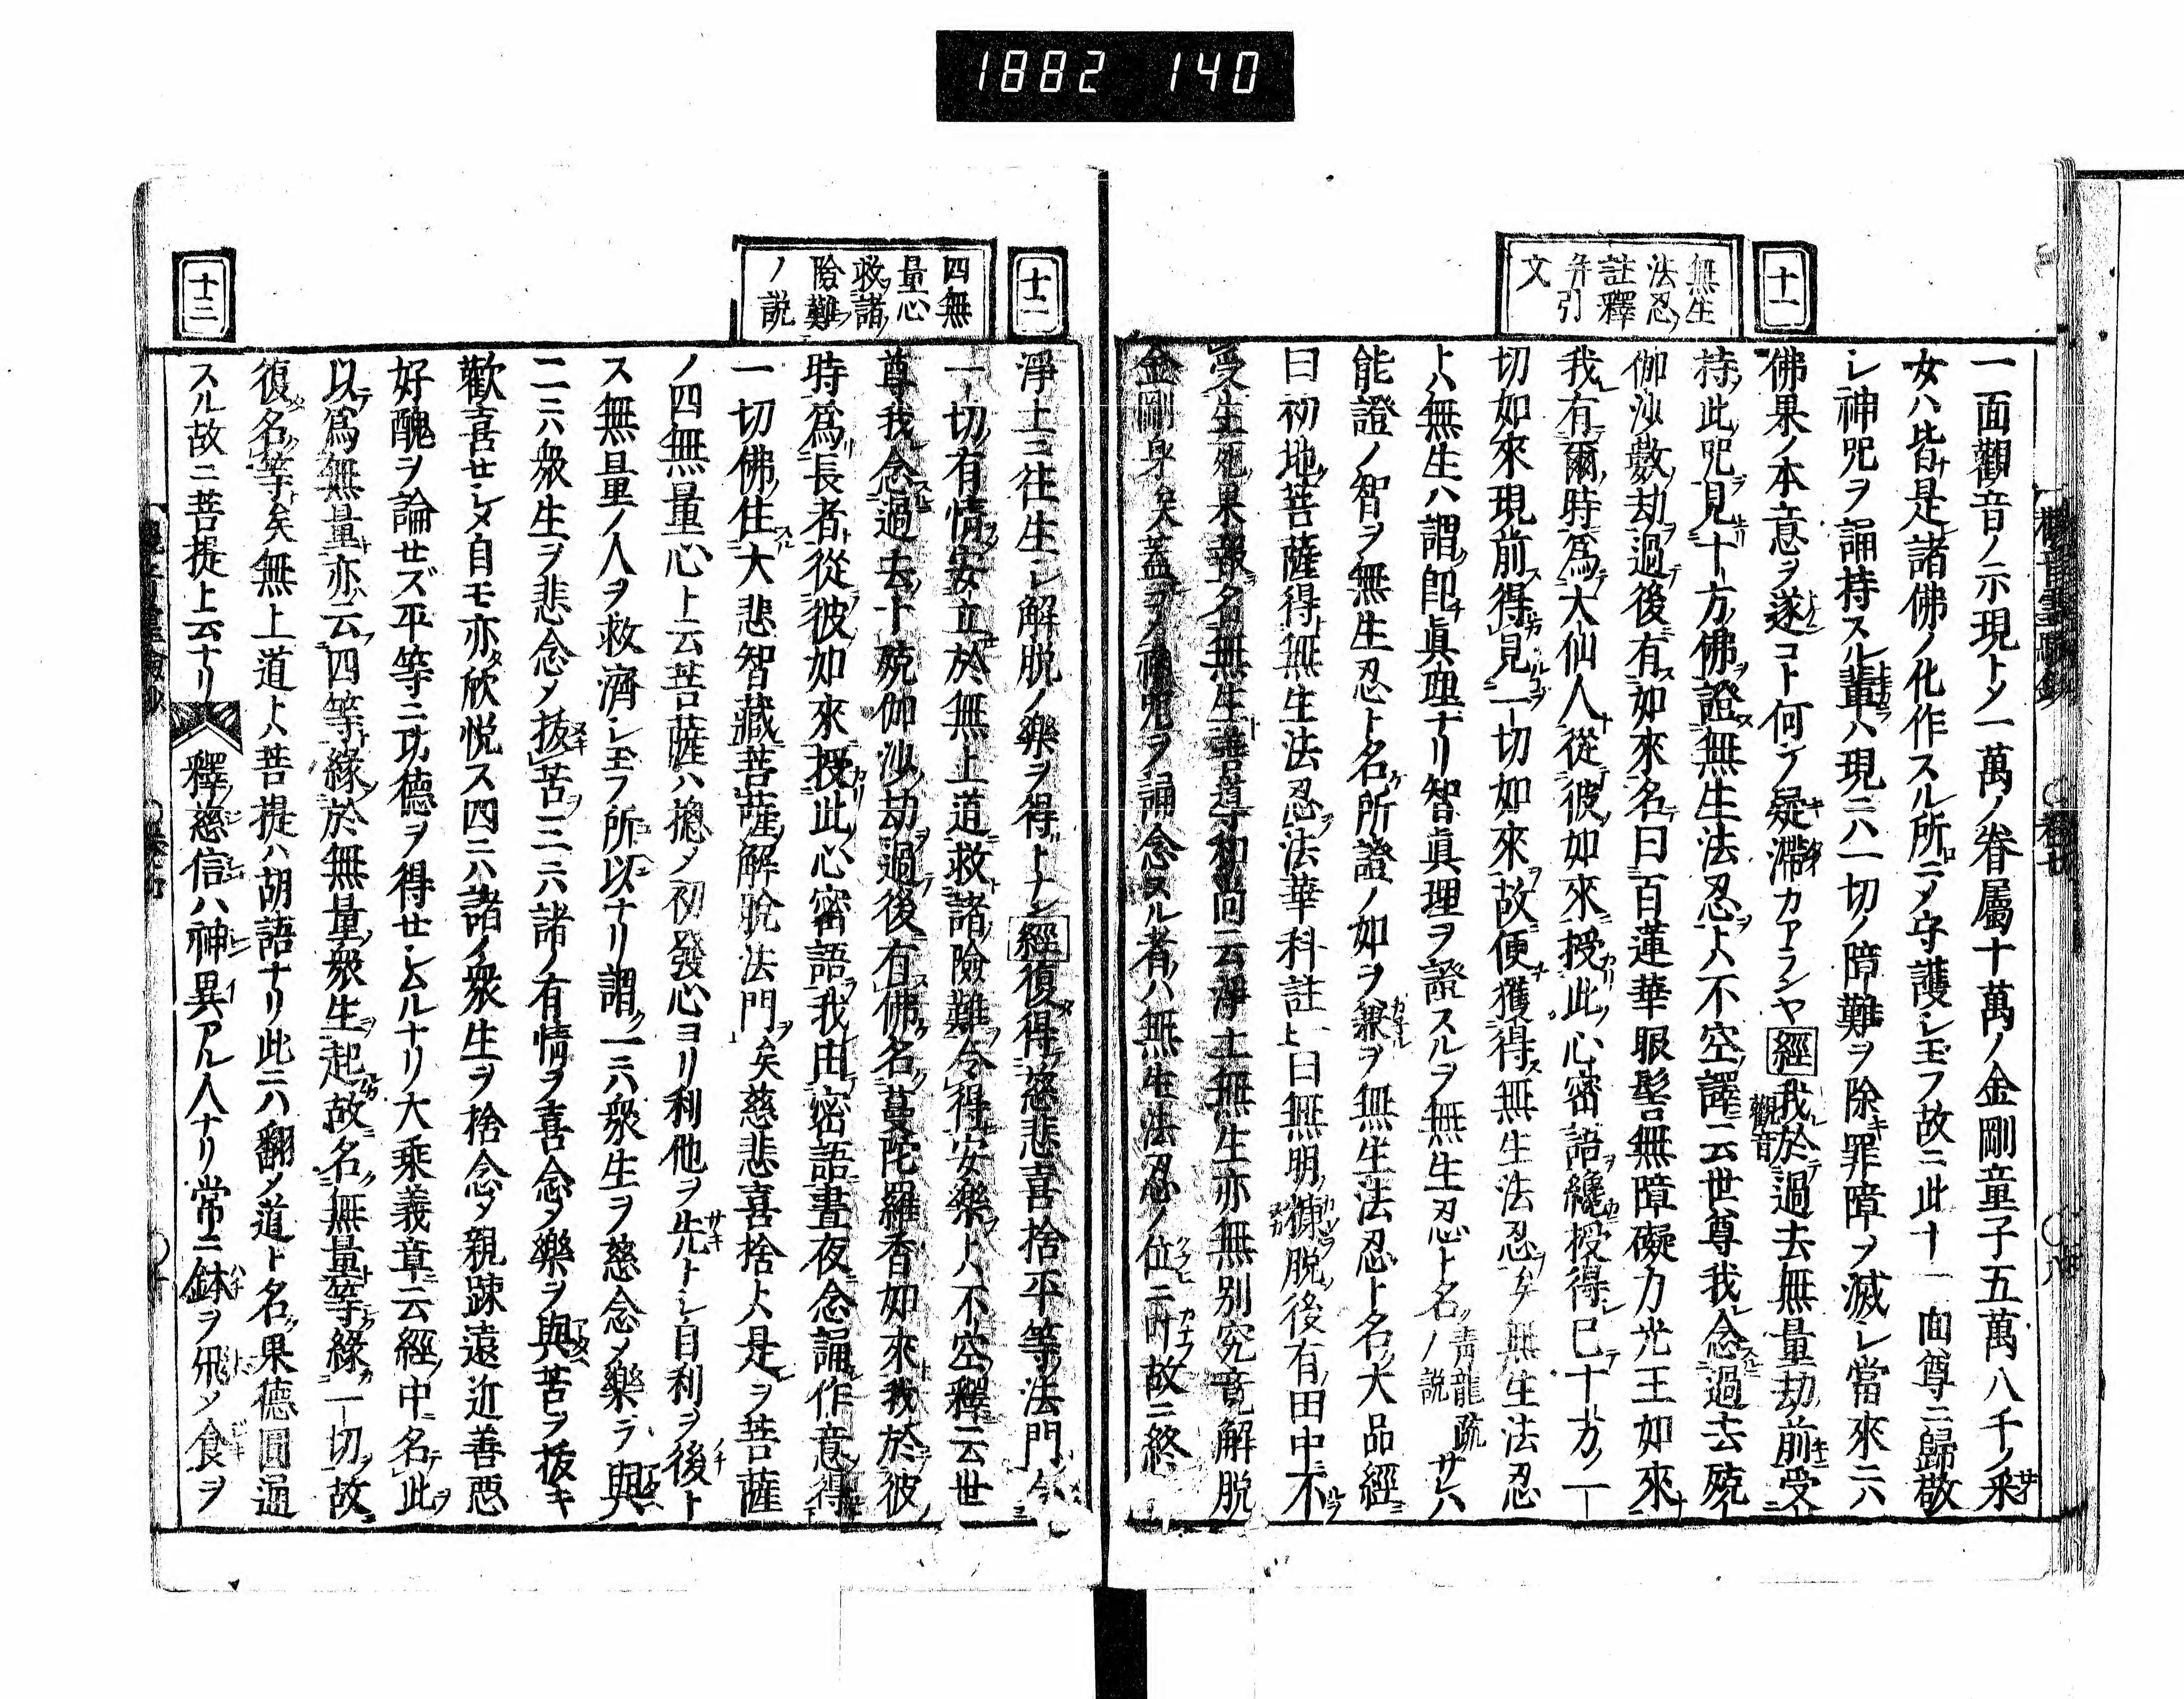 1882 140
十一
無生
法忍ノ
註釋
并引
文
一面觀音ノ示現トメ一萬ノ眷屬十萬ノ金剛童子五萬八千ノ釆
女ハ皆是諸佛ノ化作スル所ニメ守護シ玉フ故ニ此十一面尊ニ歸敬
シ神咒ヲ誦持スル輩ハ現ニハ一切ノ障難ヲ除キ罪障ヲ滅シ當來ニハ
佛果ノ本意ヲ遂コト何ソ疑滯カアランヤ經我於過去無量劫前受
觀音
持此咒見十方佛證無生法忍トハ不空譯云世尊我念過去殑
伽沙數劫過後有如來名曰百蓮華眼髻無障礙力光王如來
我有爾時爲大仙人從彼如來授此心密語纔授得已十方一
切如來現前得見一切如來故便獲得無生法忍矣無生法忍
トハ無生ハ謂即眞理ナリ智眞理ヲ證スルヲ無生忍ト名ク青龍疏ノ説サレハ
能證ノ智ヲ無生忍ト名ケ所證ノ如ヲ兼ヲ無生法忍ト名ク大品經ニ
曰初地菩薩得無生法忍法華科註上曰無明糠脱後有田中不
受生死果報名無生善導和尚云淨土無生亦無別究竟解脱
金剛身矣蓋ヲノ神咒ヲ誦念スル者ハ無生法忍ノ位ニ叶故ニ終
十二
四無
量心
救諸
險難
ノ説
淨土ニ往生シ解脱ノ樂ヲ得トナン經復得慈悲喜捨平等法門
一切有情安立於無上道救諸險難令得安樂トハ不空釋云世
尊我念過去十殑伽沙劫過後有佛名蔓陀羅香如來我於彼
時爲長者從彼如來授此心密語我由密語晝夜念誦作意得
一切佛住大悲智藏菩薩解脱法門矣慈悲喜捨トハ是ヲ菩薩
ノ四無量心ト云菩薩ハ摠メ初發心ヨリ利他ヲ先トシ自利ヲ後ト
ス無量ノ人ヲ救濟シ玉フ所以ナリ謂ク一ニハ衆生ヲ慈念メ樂ヲ與
二ニハ衆生ヲ悲念メ抜苦三ニハ諸ノ有情ヲ喜念メ樂ヲ與苦ヲ抜キ
歡喜セシメ自モ亦欣悦ス四ニハ諸ノ衆生ヲ捨念メ親疎遠近善惡
好醜ヲ論セズ平等ニ功德ヲ得セシムルナリ大乘義章ニ云經中名此
以爲無量亦云四等緣於無量衆生起故名無量等緣一切故
復名等矣無上道トハ菩提ハ胡語ナリ此ニハ翻メ道ト名ク果德圓通
十三
スル故ニ菩提ト云ナリ
釋慈信ハ神異アル人ナリ常ニ鉢ヲ飛メ食ヲ